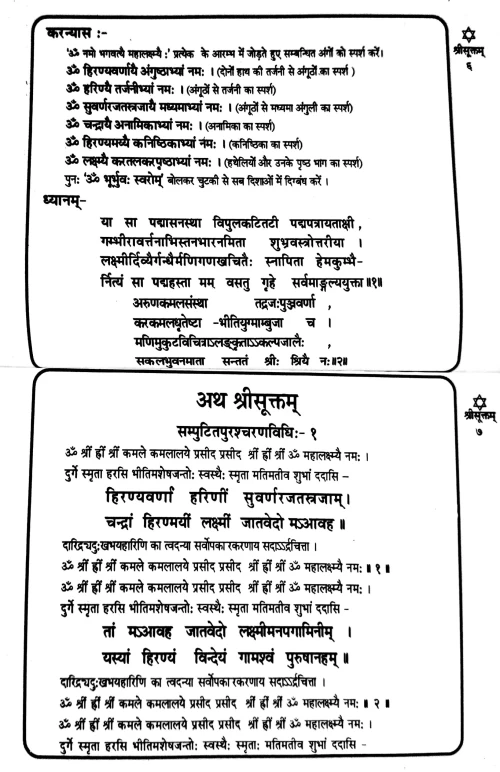 करन्यास :-
'ॐ नमो भगवत्यै महालक्ष्म्यै :' प्रत्येक के आरम्भ में जोड़ते हुए सम्बन्धित अंगों को स्पर्श करें।
ॐ हिरण्यवर्णायै अंगुष्ठाभ्यां नमः । (दोनों हाथ की तर्जनी से अंगूठों का स्पर्श )
ॐ हरिण्यै तर्जनीभ्यां नमः । (अंगूठों से तर्जनी का स्पर्श)
ॐ सुवर्णरजतस्त्रजायै मध्यमाभ्यां नमः । (अंगूठों से मध्यमा अंगुली का स्पर्श)
ॐ चन्द्रायै अनामिकाभ्यां नमः । (अनामिका का स्पर्श)
ॐ हिरण्यमय्यै कनिष्ठिकाभ्यां नमः । (कनिष्ठिका का स्पर्श)
ॐ लक्ष्म्यै करतलकरपृष्ठाभ्यां नमः । (हथेलियों और उनके पृष्ठ भाग का स्पर्श)
पुनः 'ॐ भूर्भुवः स्वरोम्' बोलकर चुटकी से सब दिशाओं में दिग्बंध करें ।
श्रीसूक्तम्
६
ध्यानम्-
या सा पद्मासनस्था विपुलकटितटी पद्मपत्रायताक्षी ,
गम्भीरावर्त्तनाभिस्तनभारनमिता शुभ्रवस्त्रोत्तरीया ।
लक्ष्मीर्दिव्यैर्गन्धैर्मणिगणखचितैः स्नापिता हेमकुम्भै-
र्नित्यं सा पद्महस्ता मम् वसतु गृहे सर्वमाङ्गल्ययुक्ता॥१॥
अरुणकमलसंस्था तद्रजःपुञ्जवर्णा ,
करकमलधृतेष्टा -भीतियुग्माम्बुजा च ।
मणिमुकुटविचित्राऽलङ्कृताऽऽकल्पजालैः ,
सकलभुवनमाता सन्ततं श्रीः श्रियै नः॥२॥
अथ श्रीसूक्तम्
श्रीसूक्तम्
७
सम्पुटितपुरश्चरणविधिः- १
ॐ श्रीं ह्रीं श्रीं कमले कमलालये प्रसीद प्रसीद श्रीं ह्रीं श्रीं ॐ महालक्ष्म्यै नमः ।
दुर्गे स्मृता हरसि भीतिमशेषजन्तोः स्वस्थैः स्मृता मतिमतीव शुभां ददासि -
हिरण्यवर्णां हरिणीं सुवर्णरजतस्त्रजाम्।
चन्द्रां हिरण्मयीं लक्ष्मीं जातवेदो मऽआवह॥
दारिद्र्यदुःखभयहारिणि का त्वदन्या सर्वोपकारकरणाय सदाऽऽर्द्रचित्ता ।
ॐ श्रीं ह्रीं श्रीं कमले कमलालये प्रसीद प्रसीद श्रीं ह्रीं श्रीं ॐ महालक्ष्म्यै नमः॥१॥
ॐ श्रीं ह्रीं श्रीं कमले कमलालये प्रसीद प्रसीद श्रीं ह्रीं श्रीं ॐ महालक्ष्म्यै नमः ।
दुर्गे स्मृता हरसि भीतिमशेषजन्तोः स्वस्थैः स्मृता मतिमतीव शुभां ददासि -
तां मऽआवह जातवेदो लक्ष्मीमनपगामिनीम् ।
यस्यां हिरण्यं विन्देयं गामश्वं पुरुषानहम् ॥
दारिद्र्यदुःखभयहारिणि का त्वदन्या सर्वोपकारकरणाय सदाऽऽर्द्रचित्ता ।
ॐ श्रीं ह्रीं श्रीं कमले कमलालये प्रसीद प्रसीद श्रीं ह्रीं श्रीं ॐ महालक्ष्म्यै नमः ॥ २ ॥
ॐ श्रीं ह्रीं श्रीं कमले कमलालये प्रसीद प्रसीद श्रीं ह्रीं श्रीं ॐ महालक्ष्म्यै नमः ।
दुर्गे स्मृता हरसि भीतिमशेषजन्तोः स्वस्थैः स्मृताः मतिमतीव शुभां ददासि -